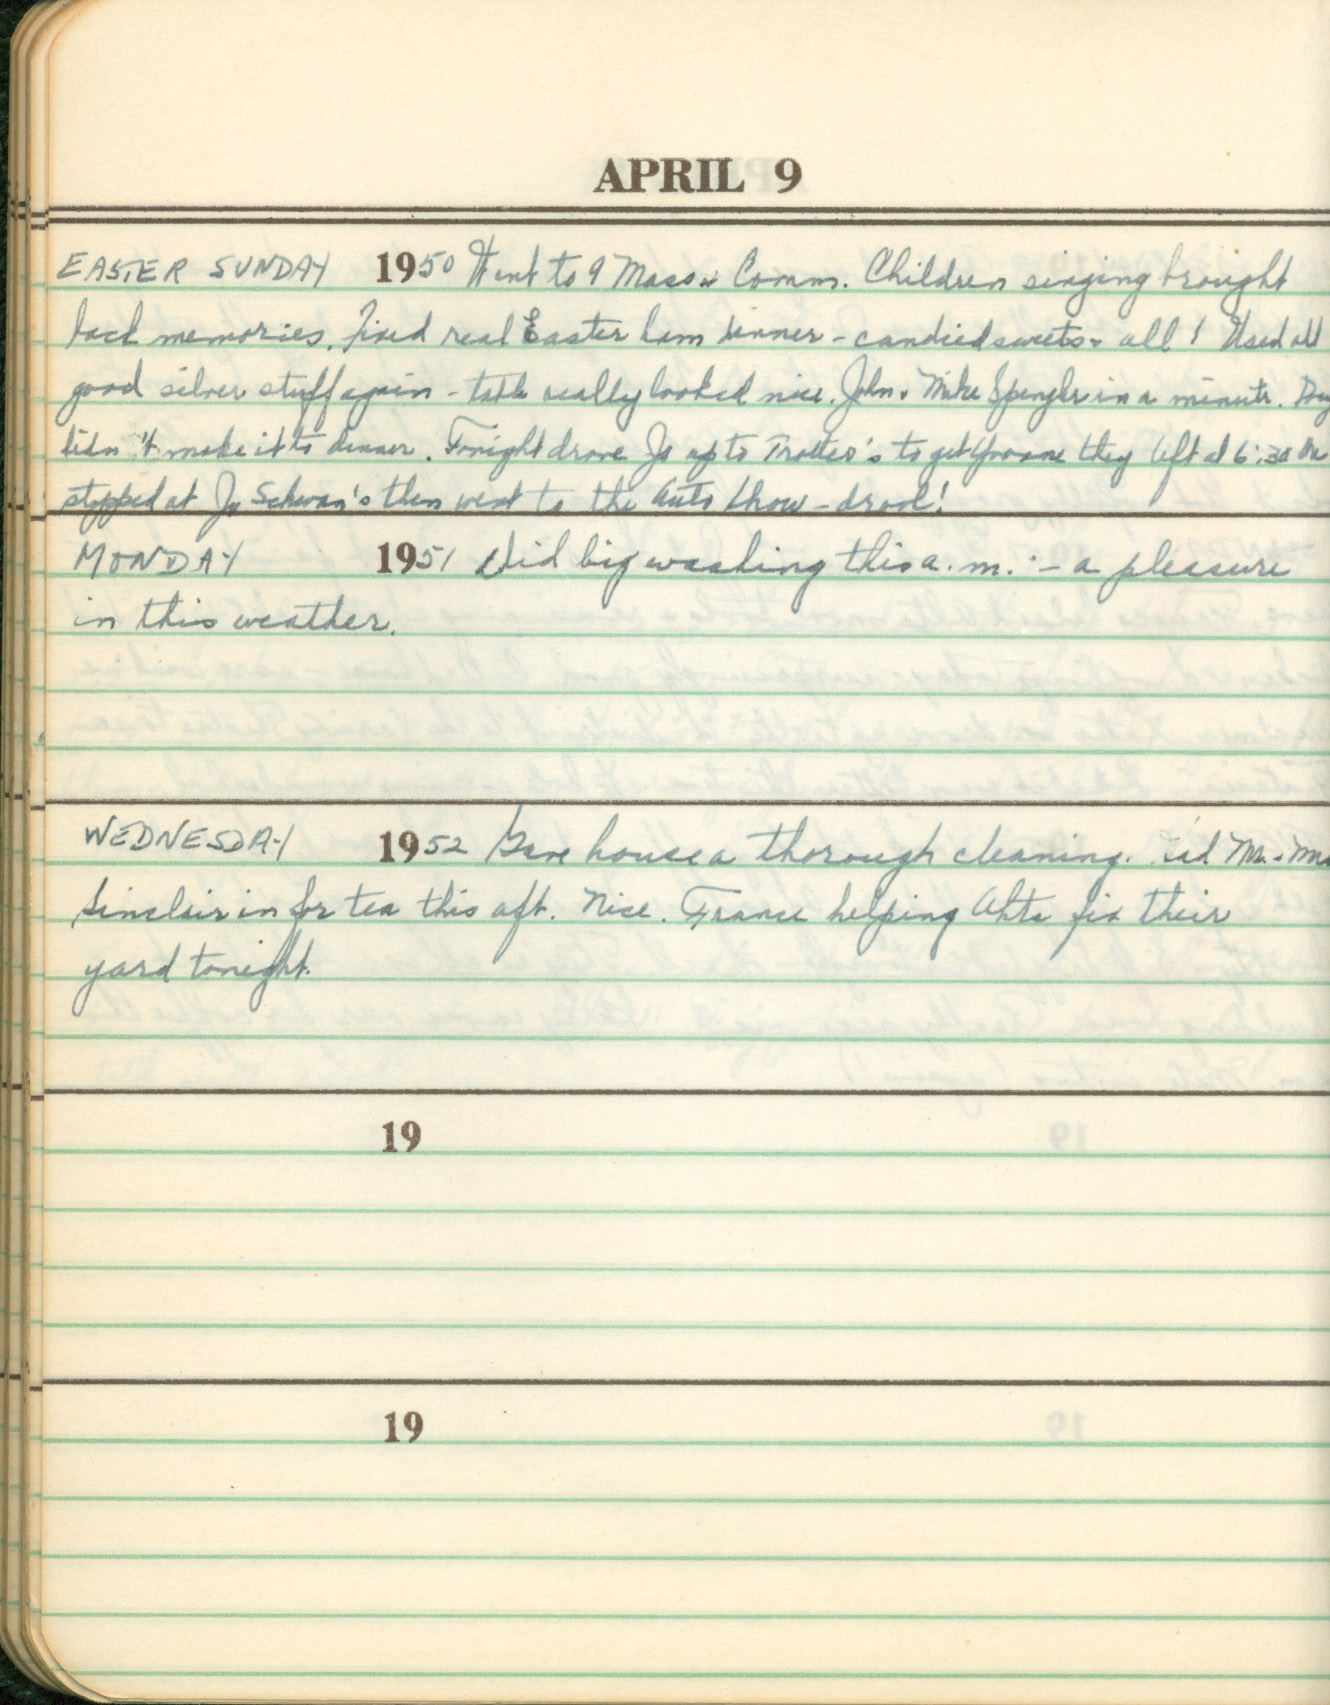 APRIL 9
EASTER SUNDAY 1950 Went to 9 Mass & Comm. Children singing brought
back memories. Fixed real Easter ham dinner - candied sweets & all! Used all
good silver stuff again - table really looked nice. John & Mike Spengler in a minute.
didn't make it to dinner. Tonight drove Jo up to to get Yvonne they left at 6:30
stopped at Jy Schwan's then went to the Auto Show - drool!
MONDAY 1951 Did big washing this a.m. - a pleasure
in this weather.
WEDNESDAY 1952 Gave house a thorough cleaning. Had Mr. & Mrs
Sinclair in for tea this aft. Nice. France helping Ahts fix their
yard tonight.
19
19